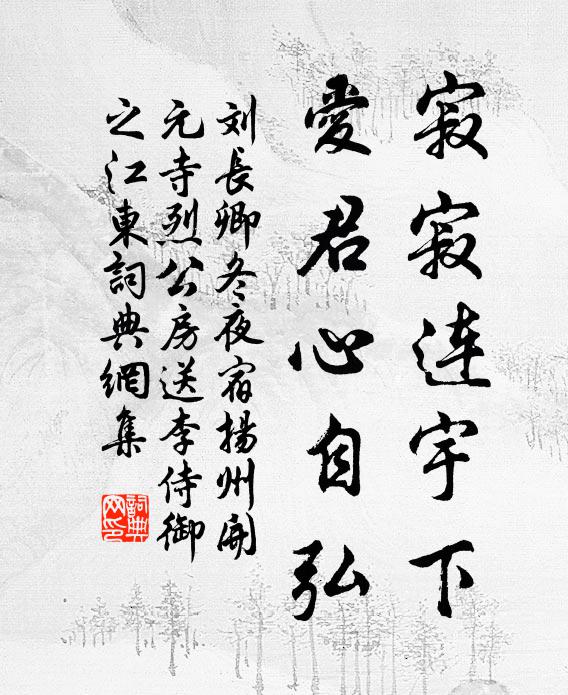 寂寂连宇下
愛君心自弘
刘長卿冬夜宿揚州開
元寺烈公房送李侍御
之江東詞典網集
詞典網印